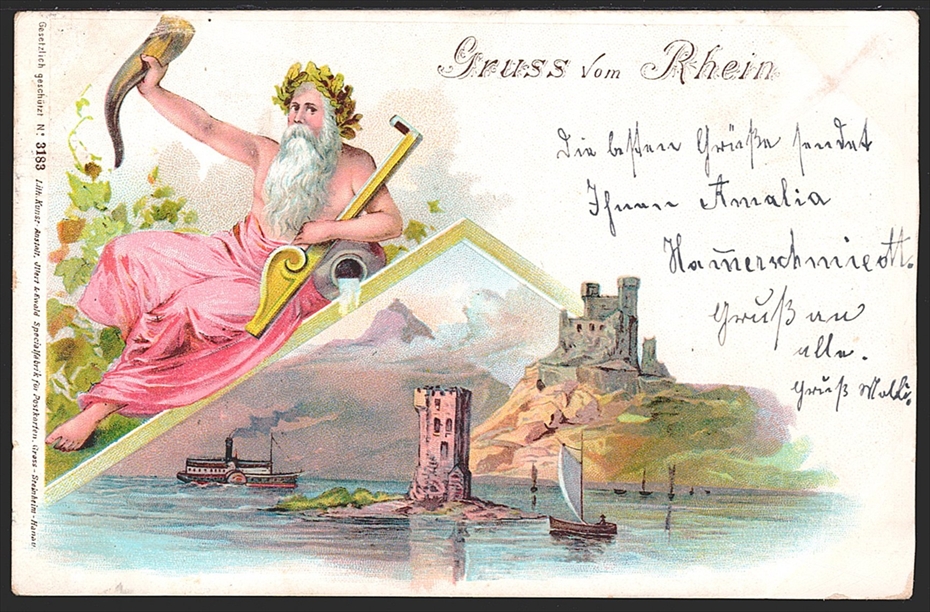 Gruss vom Rhein
Die besten Grüße sendet
Ihnen Amalia
Ham̅erschmiedt.
Gruß an
alle.
Gruß
Gesetzlich geschützt No. 3183 Lith. Kunst-Anstalt, & Ewald Specialfabrik für Postkarten, Gross-Steinheim-Hanau